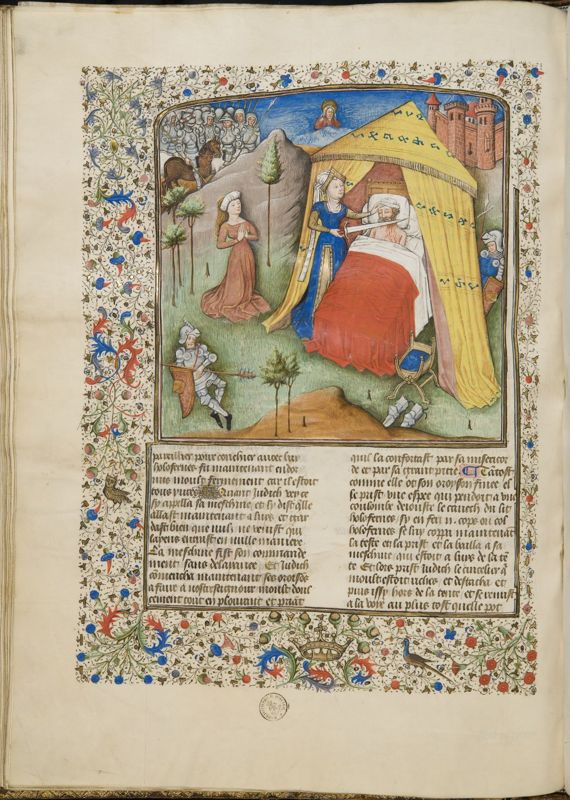 pareillier pour couchier auec luy
holofernes fu maintenant endor
mis moult fermement car il estoit
tout yures Quant Judich vey ce
sy appella sa meschine et sy dist qlle
allast maintenant a luys et gar
dast bien que nulz ne venist qui
layens entrast en nulle maniere
La meschine fist son commande
ment sans delaiance Et Judich
commencha maintenant ses orisos
a faire a nostre seigneur moult douc
ement tout en plourant et priāt
quil la confortast par sa misericor
de et par sa grant pitie Tātost
comme elle ot son oroyson finee el
le prist une espee qui pendoit a une
coulombe deioüste le cauech du lit
holofernes sy en feri .ii. cops ou col
holofernes se luy coppa maintenāt
la teste et la prist et la bailla a sa
meschine qui estoit a luys de la tē
te Et lors prist Judich le couuertoir q̄
moult estoit riches et destacha et
puis issy hors de la tente et se remist
a la voie au plus tost quelle pot